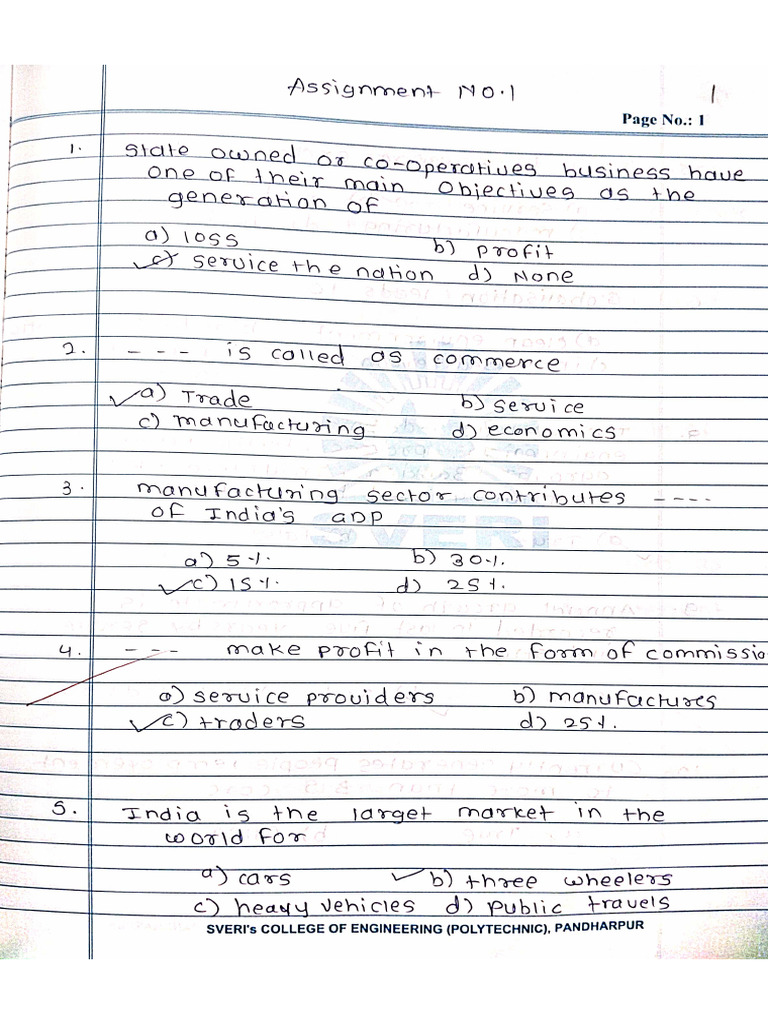 Assignment NO.1
1
Page No.: 1
1. State owned or co-operatives business have
one of their main objectives as the
generation of
a) loss b) profit
✓c) service the nation d) None
2. - - - is called as commerce
✓a) Trade b) service
c) manufacturing d) economics
3. manufacturing sector contributes - - - -
of India's GDP
a) 5% b) 30%.
✓c) 15% d) 25%.
4. - - - make profit in the form of commissio
a) service providers b) manufactures
✓c) traders d) 25%.
5. India is the larget market in the
world for
a) cars ✓b) three wheelers
c) heavy vehicles d) public travels
SVERI
SVERI's COLLEGE OF ENGINEERING (POLYTECHNIC), PANDHARPUR